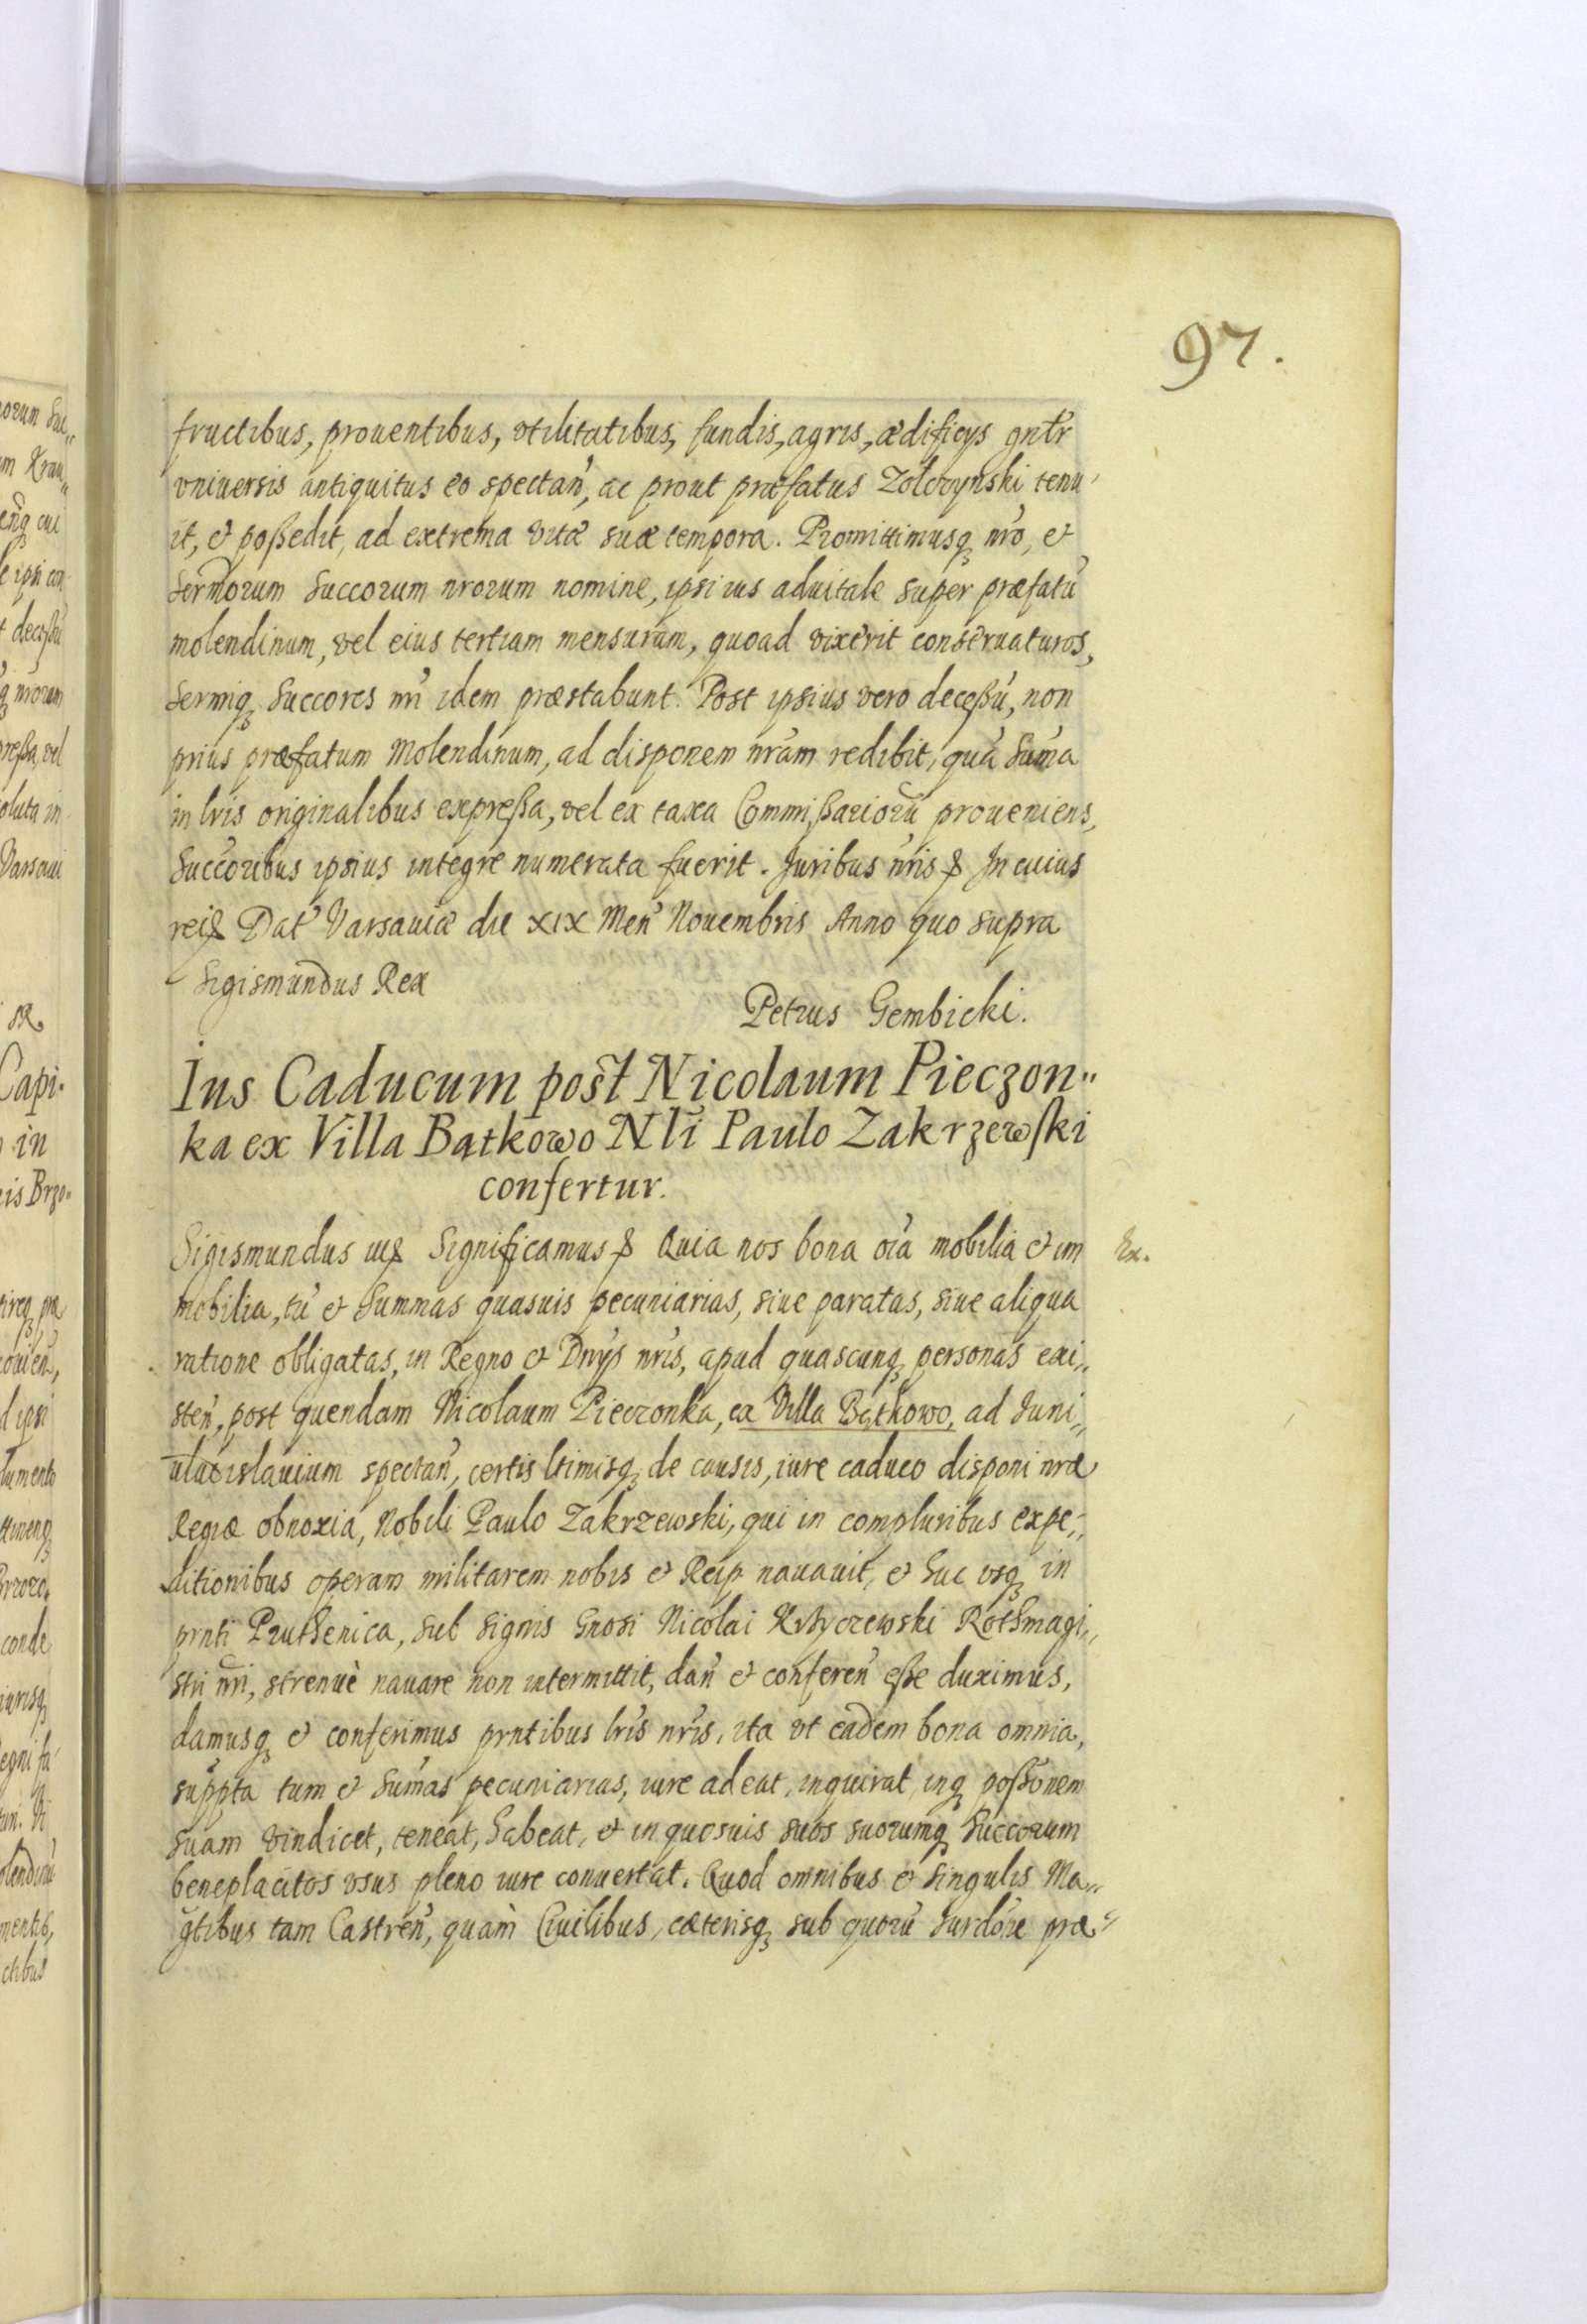 97.
fructibus, prouentibus, vtilitatibus, fundis, agris, ædificijs gnłr
vniuersis antiquitus eo spectan̄, ac prout præfatus Zołczynski tenu
it, et poßedit, ad extrema vitæ suæ tempora. Promittimusq̨ nr̄o, et
Sermorum Succorum nrorum nomine, ipsi ius aduitale super præfatū
molendinum, vel eius tertiam mensuram, quoad vixerit conseruaturos,
Sermiq̨ Succores nr̄i idem præstabunt. Post ipsius vero deceßū, non
prius præfatum Molendinum, ad disponem nr̄am redibit, quā Sum̄a
in lr̄is originalibus expreßa, vel ex taxa Commißariorū proueniens,
Succoribus ipsius integre numerata fuerit. Juribus nr̄is &. In cuius
rei & Dat̄ Varsauiæ die XIX Men̄ Nouembris Anno quo supra
Sigismundus Rex
Petrus Gembicki.
Ius Caducum post Nicolaum Pieczon"
ka ex Villa Bątkowo Nłi Paulo Zakrzewski
confertur.
Sigismundus iii & Significamus & Quia nos bona oīa mobilia et im
Ex.
mobilia, tū et Summas quasuis pecuniarias, siue paratas, siue aliqua
ratione obligatas, in Regno et Dnÿs nr̄is, apud quascunq̨ personas exi„
sten̄, post quendam Nicolaum Pieczonka, ex Villa Bątkowo, ad Juni„
ulatislauium spectan̄, certis ltimisq̨ de causis, iure caduco disponi nræ
Regiæ obnoxia, Nobili Paulo Zakrzewski, qui in compluribus expe„
ditionibus operam militarem nobis et Reip nauauit, et huc vsq̨ in
prnti Pruthenica, sub signis Gnosi Nicolai Rothmagi„
stri nr̄i, strenuè nauare non intermittit, dan̄ et conferen̄ eße duximus,
damusq̨ et conferimus prntibus lr̄is nr̄is, ita vt eadem bona omnia,
suppta tum et Sum̄as pecuniarias, iure adeat, inquirat, inq̨ poßonem
suam vindicet, teneat, habeat, et in quosuis suos suorumq̨ Succorum
beneplacitos vsus pleno iure conuertat. Quod omnibus et singulis Ma„
gtibus tam Castren̄, quàm Ciuilibus, cæterisq̨ sub quorū Surdōne præ„